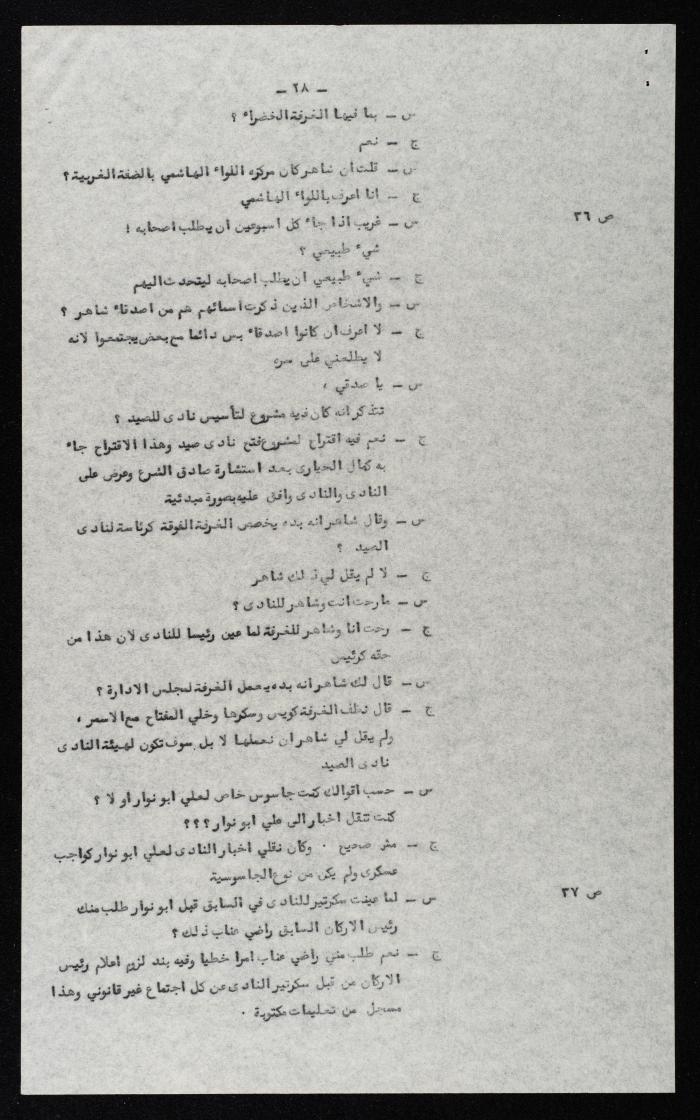 - ٢٨ -
س - بما فيها الغرفة الخضراء ؟
ج - نعم
س - قلت ان شاهر كان مركزه اللواء الهاشمي بالضفة الغربية ؟
ج - انا اعرف باللواء الهاشمي
ص ٣٦
س - غريب اذا جاء كل اسبوعين ان يطلب اصحابه !
شيء طبيعي ؟
ج - شيء طبيعي ان يطلب اصحابه ليتحدث اليهم
س - والاشخاص الذين ذكرت اسمائهم هم من اصدقاء شاهر ؟
ج - لا اعرف ان كانوا اصدقاء بس دائما مع بعض يجتمعوا لانه
لا يطلعني على سره
س - يا صدقي ،
تتذكر انه كان فيه مشروع لتأسيس نادى للصيد ؟
ج - نعم فيه اقتراح لمشروع فتح نادى صيد وهذا الاقتراح جاء
به كمال الحيارى بعد استشارة صادق الشرع وعرض على
النادى والنادى وافق عليه بصورة مبدئية
س - وقال شاهر انه بده يخصص الغرفة الفوقة كرئاسة لنادى
الصيد ؟
ج - لا لم يقل لي ذلك شاهر
س - ما رحت انت وشاهر للنادى ؟
ج - رحت انا وشاهر للغرفة لما عين رئيسا للنادى لان هذا من
حقه كرئيس
س - قال لك شاهر انه بده يعمل الغرفة لمجلس الادارة ؟
ج - قال نظف الغرفة كويس وسكرها وخلي المفتاح مع الاسمر ،
ولم يقل لي شاهر ان نعملها لا بل سوف تكون لهيئة النادى
نادى الصيد
س - حسب اقوالك كنت جاسوس خاص لعلي ابو نوار او لا ؟
كنت تنقل اخبار الى علي ابو نوار ؟ ؟ ؟
ج - مش صحيح . وكان نقلي اخبار النادى لعلي ابو نوار كواجب
عسكرى ولم يكن من نوع الجاسوسية
ص ٣٧
س - لما عينت سكرتير للنادى في السابق قبل ابو نوار طلب منك
رئيس الاركان السابق راضي عناب ذلك ؟
ج - نعم طلب مني راضي عناب امرا خطيا وفيه بند لزوم اعلام رئيس
الاركان من قبل سكرتير النادى عن كل اجتماع غير قانوني وهذا
مسجل من تعليمات مكتوبة .